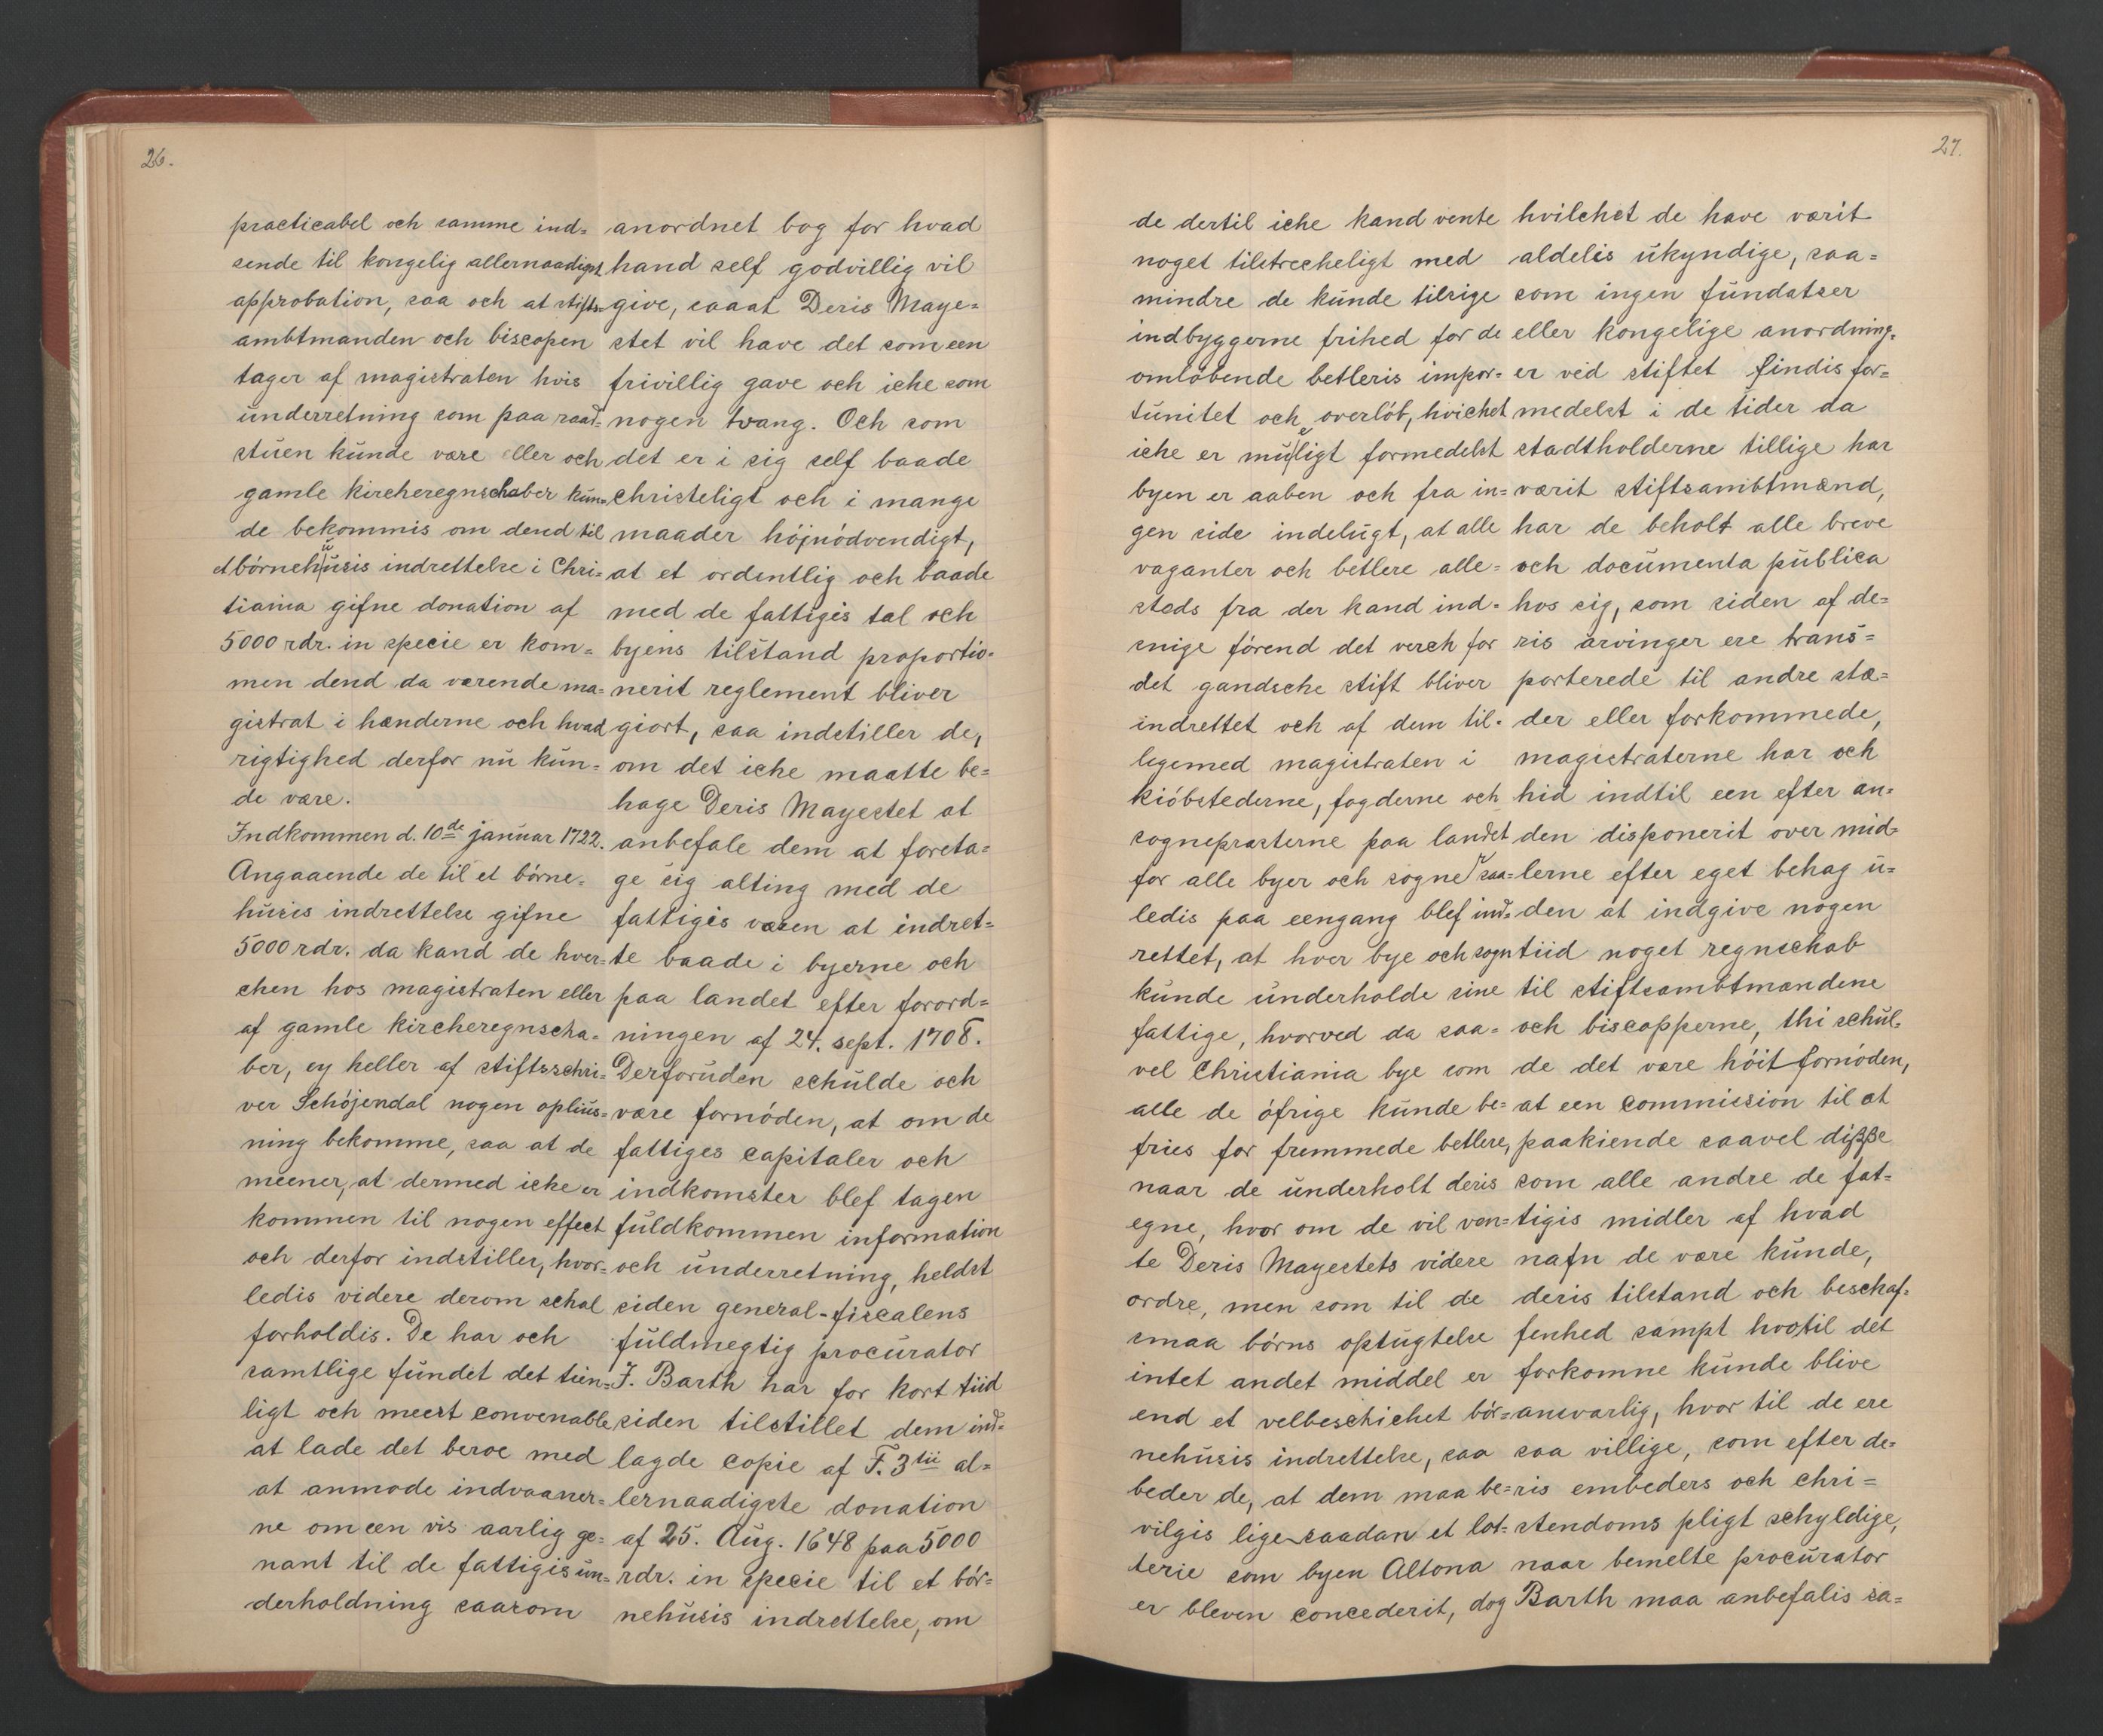 26.
practicabel och samme ind=
sende til kongelig allernaadigst
approbation, saa och at stifts=
ambtmanden och biscopen
tager af magistraten hvis
underretning som paa raad=
stuen kunde være eller och
gamle kircheregnschaber kun=
de bekommis om dend til
et börnehusis indrettelse i Chri=
tiania gifne donation af
5000 rdr. in specie er kom=
men dend da værende ma=
gistrat i hænderne och hvad
rigtighed derfor nu kun=
de være.
Indkommen d. 10de januar 1722.
Angaaende de til et börne=
husis indrettelse gifne
5000 rdr. da kand de hver=
chen hos magistraten eller
af gamle kircheregnscha=
ber, ey heller af stiftsschri=
ver Schöjendal nogen oplius=
ning bekomme, saa at de
meener, at dermed icke er
kommen til nogen effect
och derfor indstiller, hvor=
ledis videre derom schal
forholdis. De har och
samtlige fundet det tien=
ligt och meest convenable
at lade det beroe med
at anmode indvaaner=
ne om een vis aarlig ge=
nant til de fattigis un=
derholdning saasom
anordnet bog for hvad
hand self godvillig vil
give, saaat Deris Maye=
stet vil have det som een
frivillig gave och iche som
nogen tvang. Och som
det er i sig self baade
christeligt och i mange
maader höjnödvendigt,
at et ordentlig och baade
med de fattigis tal och
byens tilstand proportio=
nerit reglement bliver
giort, saa indstiller de,
om det iche maatte be=
hage Deris Mayestet at
anbefale dem at foreta=
ge sig alting med de
fattigis væsen at indret=
te baade i byerne och
paa landet efter forord=
ningen af 24. sept. 1708.
Derforuden schulde och
være fornöden, at om de
fattiges capitaler och
indkomster blef tagen
fuldkommen information
och underretning, heldst
siden general-fiscalens
fuldmegtig procurator
J. Barth har for kort tiid
siden tilstillet dem ind=
lagde copie af F. 3tii al=
lernaadigste donation
af 25. Aug. 1648 paa 5000
rdr. in specie til et bör=
nehusis indrettelse, om
27.
de dertil iche kand vente
noget tilstrecheligt med
mindre de kunde tilsige
indbyggerne frihed for de
omlöbende betleris impor=
tunitet och overlöb, hvichet
iche er mueligt formedelst
byen er aaben och fra in=
gen side indelugt, at alle
vaganter och betlere alle=
steds fra der kand ind=
snige förend det verch for
det gandsche stift bliver
indrettet och af dem til=
ligemed magistraten i
kiöbstederne, fogderne och
sognepræsterne paa landet
for alle byer och sogner saa=
ledis paa eengang blef ind=
rettet, at hver bye och sogn
kunde underholde sine
fattige, hvorved da saa=
vel Christiania bye som
alle de öfrige kunde be=
fries for fremmede betlere,
naar de underholt deris
egne, hvor om de vil ven=
te Deris Mayestets videre
ordre, men som til de
smaa börns optugtelse
intet andet middel er
end et velbeschichet bör=
nehusis indrettelse, saa
beder de, at dem maa be=
vilgis lige saadan et lot=
terie som byen Altona
er bleven concederit, dog
hvilchet de have værit
aldelis ukyndige, saa=
som ingen fundatser
eller kongelige anordning=
er ved stiftet findis for=
medelst i de tider da
stadtholderne tillige har
værit stiftsambtmænd,
har de beholt alle breve
och documenta publica
hos sig, som siden af de=
ris arvinger ere trans=
porterede til andre stæ=
der eller forkommede,
magistraterne har och
hid indtil een efter an=
den disponerit over mid=
lerne efter eget behag u=
den at indgive nogen
tiid noget regnschab
til stiftsambtmandene
och biscopperne, thi schul=
de det være höit fornöden,
at een commission til at
paakiende saavel disse
som alle andre de fat=
tigis midler af hvad
nafn de være kunde,
deris tilstand och beschaf=
fenhed sampt hvotil det
forkomne kunde blive
ansvarlig, hvor til de ere
saa villige, som efter de=
ris embeders och chri=
stendoms pligt schyldige,
naar bemelte procurator
Barth maa anbefalis sa=